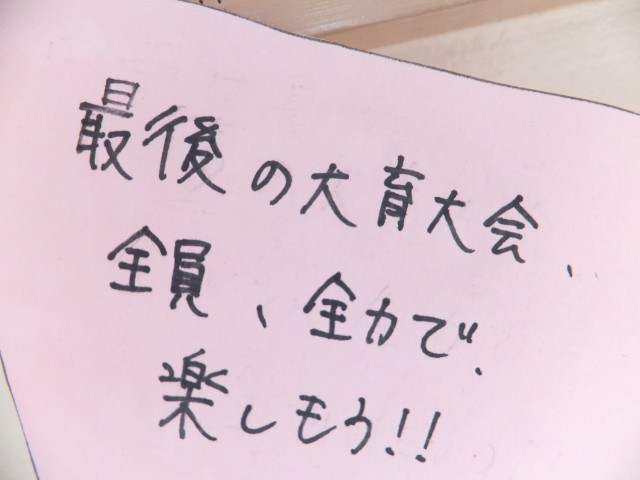 最後の大育大会、
全員、全力で、
楽しもう!!